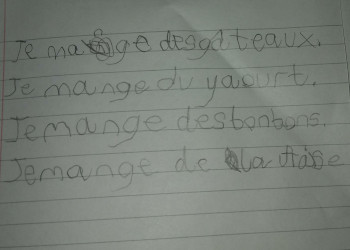 Je mange desgâteaux.
Je mange du yaourt.
Jemange desbonbons.
Jemange de la